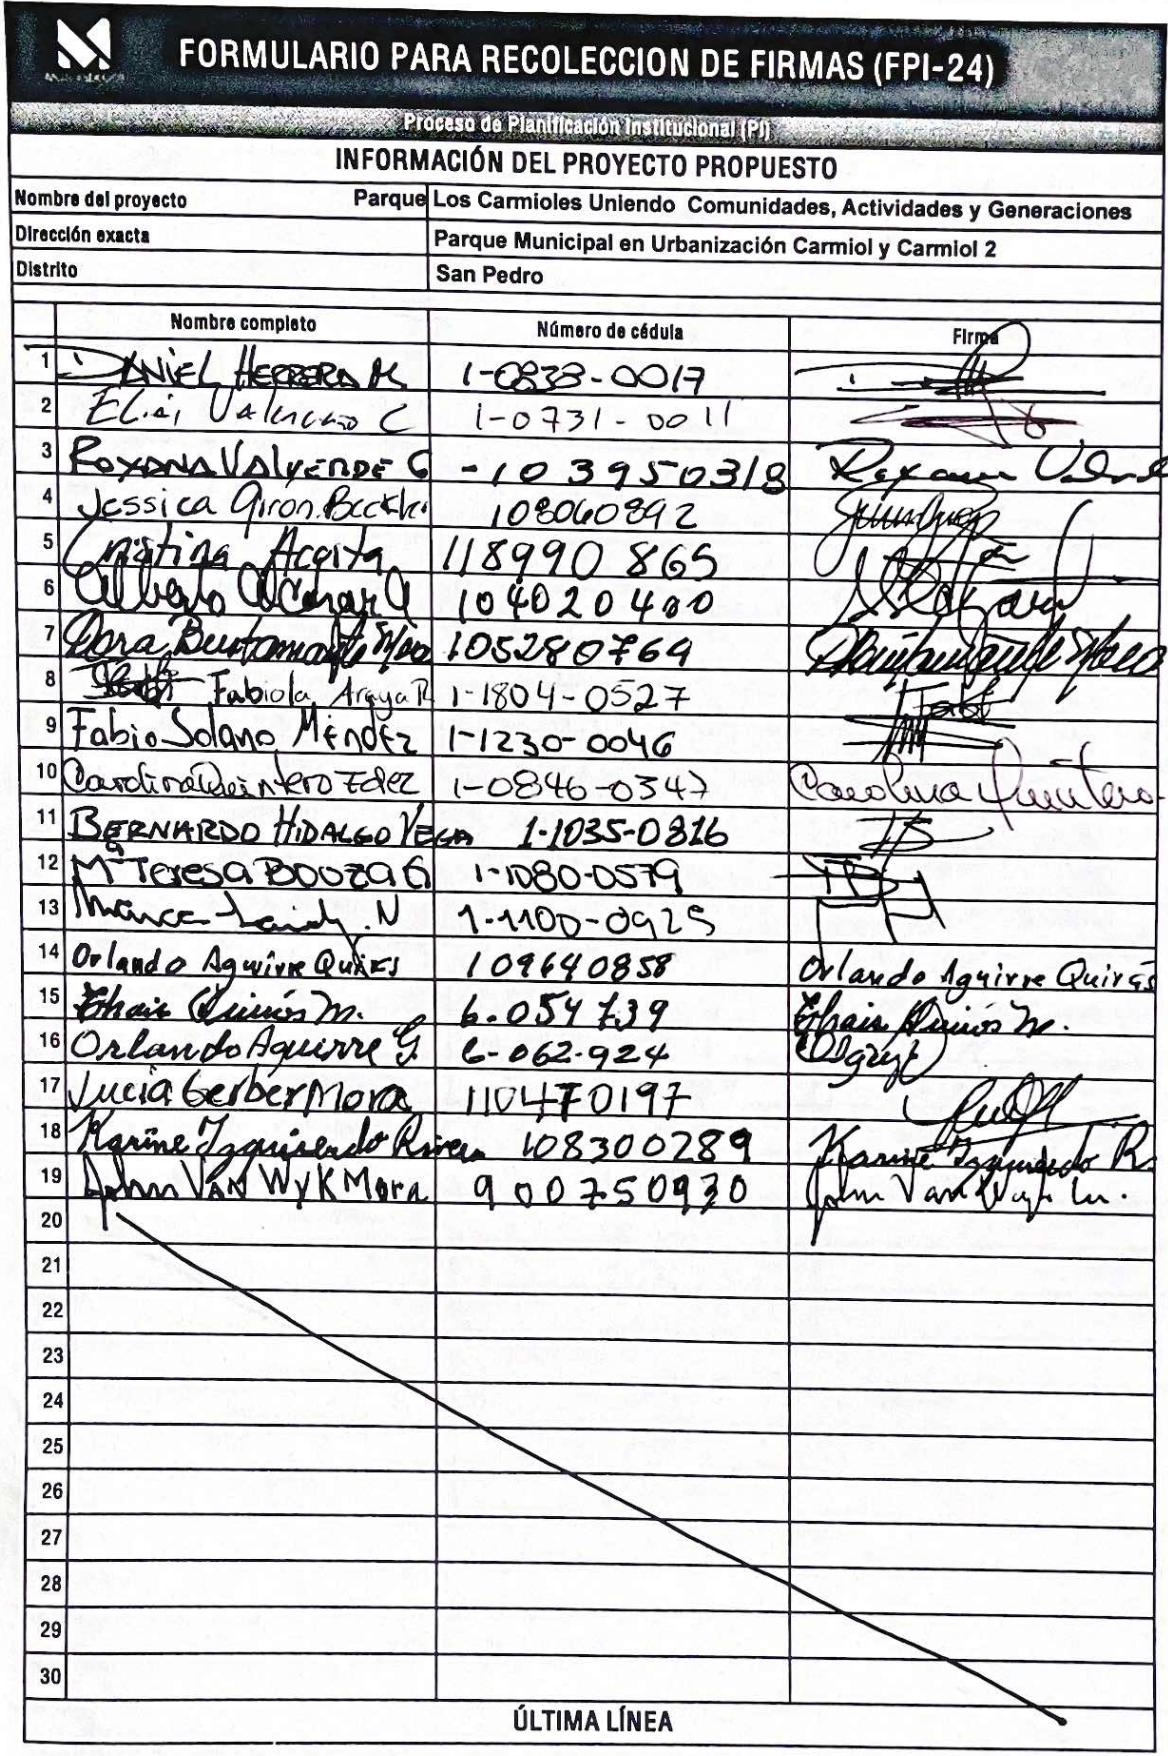 FORMULARIO PARA RECOLECCION DE FIRMAS (FPI-24)
Proceso de Planificación Institucional (PI)
INFORMACIÓN DEL PROYECTO PROPUESTO
Nombre del proyecto Parque Los Carmioles Uniendo Comunidades, Actividades y Generaciones
Dirección exacta Parque Municipal en Urbanización Carmiol y Carmiol 2
Distrito San Pedro
Nombre completo Número de cédula Firma
1 DANIEL HERRERA M 1-0838-0017
2 C 1-0731-0011
3 ROXANA VALVERDE C -103950318 Roxana
4 Jessica Giron 108060892
5 Cristina 118990865
6 Alberto 104020400
7 Bustamante 105280764
8 Fabiola Araya R 1-1804-0527
9 Fabio Solano Méndez 1-1230-0046
10 Carolina Quintero 1-0846-0347 Carolina Quintero
11 BERNARDO HIDALGO VEGA 1-1035-0816
12 Mª Teresa BOUZA G 1-1080-0579
13 N 1-1100-0925
14 Orlando Aguirre Quirós 109640858 Orlando Aguirre Quirós
15 Quirós M. 6-054739 Quirós M.
16 Orlando Aguirre G. 6-062-924
17 Lucía Gerber Mora 110470197
18 Karine Izquierdo Rivera 108300289 Karine Izquierdo R.
19 John VAN WYK Mora 900750930 John Van Wyk
20
21
22
23
24
25
26
27
28
29
30
ÚLTIMA LÍNEA